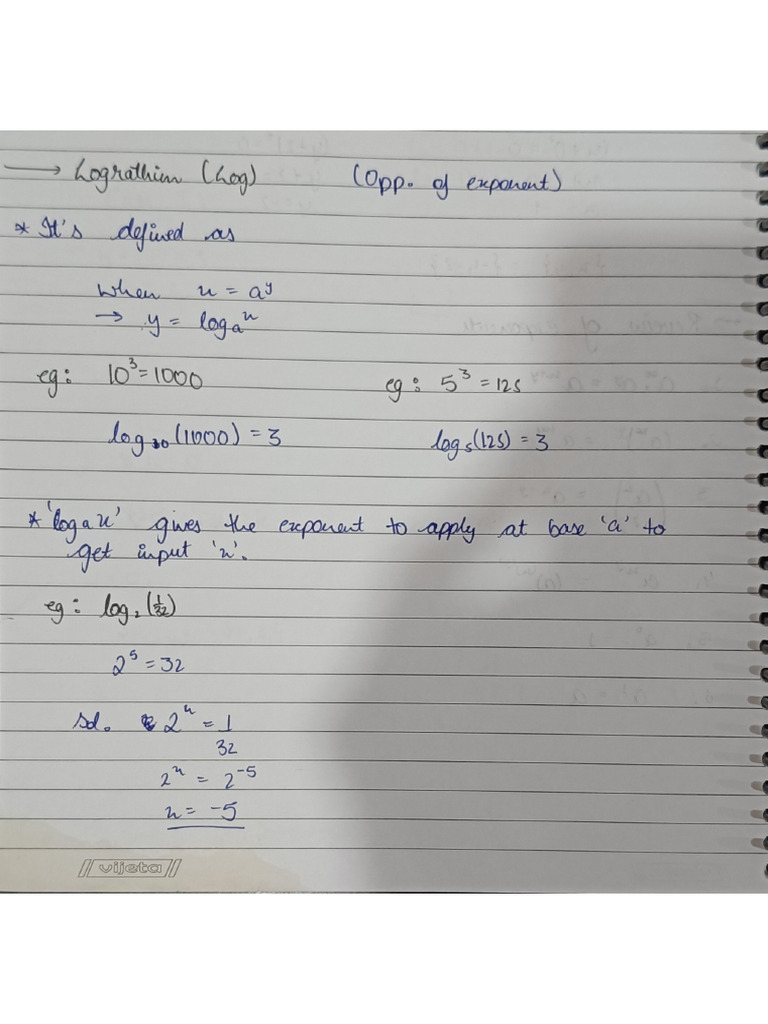 → Lograthim (Log) (Opp. of exponent)
* It's defined as
When x = a^y
→ y = log_a x
eg: 10^3 = 1000 eg: 5^3 = 125
log_10 (1000) = 3 log_5 (125) = 3
* 'log_a x' gives the exponent to apply at base 'a' to
get input 'x'.
eg: log_2 (1/32)
2^5 = 32
Sol. 2^x = 1/32
2^x = 2^-5
x = -5
vijeta